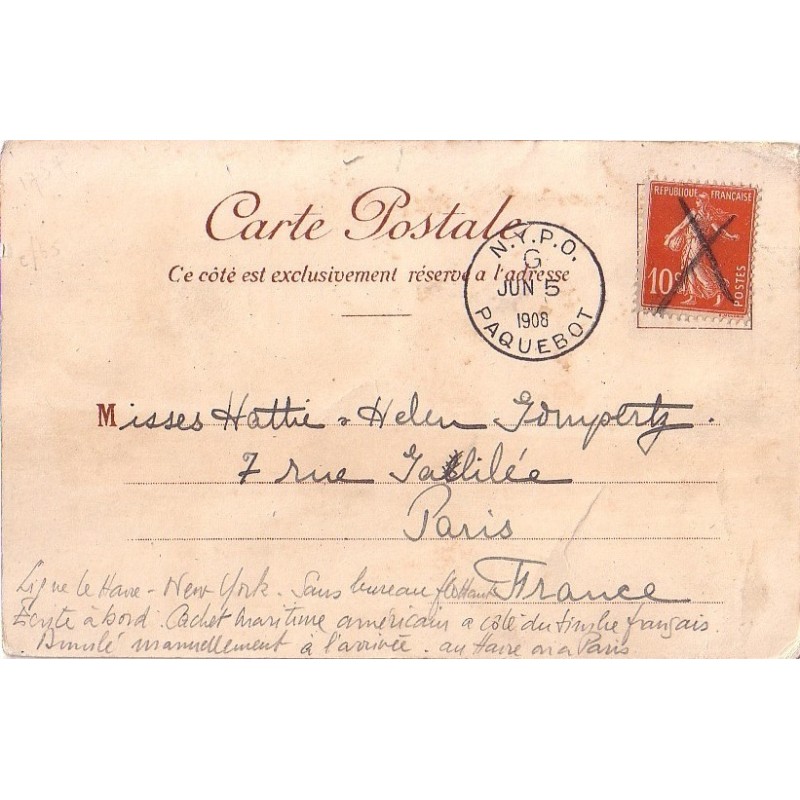 Carte Postale
Ce côté est exclusivement réservé a l'adresse
N.Y.P.O.
G
JUN 5
1908
PAQUEBOT
REPUBLIQUE FRANÇAISE
10c
POSTES
Misses Hattie & Helen Gompertz.
7 rue Galilée
Paris
France
Ligne le Havre - New York. Sans bureau flottant
Ecrite à bord. Cachet maritime américain a côté du timbre français.
Annulé manuellement à l'arrivée. au Havre ou a Paris